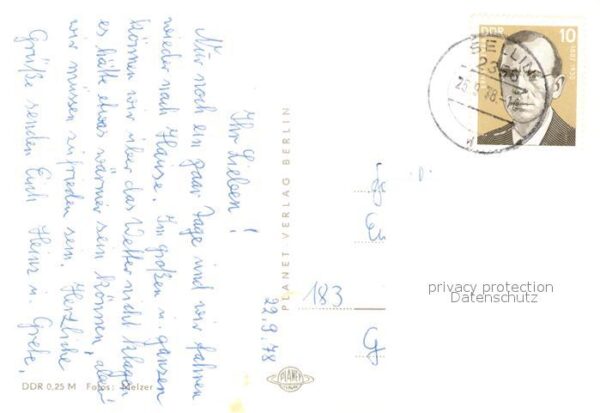 Ihr Lieben!
Nur noch ein paar Tage und wir fahren
wieder nach Hause. Im großen u. ganzen
können wir über das Wetter nicht klagen
es hätte etwas wärmer sein können, aber
wir müssen zufrieden sein. Herzliche
Grüße senden Euch Heinz u. Grete.
22.9.78
PLANET VERLAG BERLIN
DDR 0,25 M Fotos: Melzer
PLANET
183
DDR 10
SELLIN
privacy protection
Datenschutz